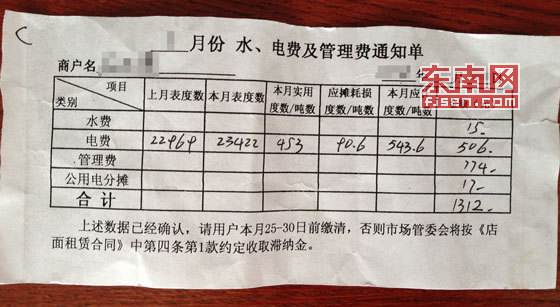 月份 水、电费及管理费通知单
商户名
东南网
fjsen.com
项目 类别 上月表度数 本月表度数 本月实用度数/吨数 应摊耗损度数/吨数 本月应
水费 15-
电费 22969 23422 453 90.6 543.6 506-
管理费 774-
公用电分摊 17-
合计 1312-
上述数据已经确认，请用户本月25-30日前缴清，否则市场管委会将按《店
面租赁合同》中第四条第1款约定收取滞纳金。